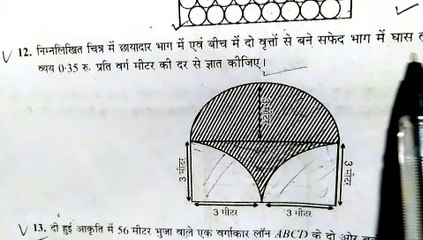 12. निम्नलिखित चित्र में छायादार भाग में एवं बीच में दो वृत्तों से बने सफेद भाग में घास
व्यय 0·35 रु. प्रति वर्ग मीटर की दर से ज्ञात कीजिए।
3 मीटर
3 मीटर
3 मीटर
3 मीटर
13. दी हुई आकृति में 56 मीटर भुजा वाले एक वर्गाकार लॉन ABCD के दो ओर